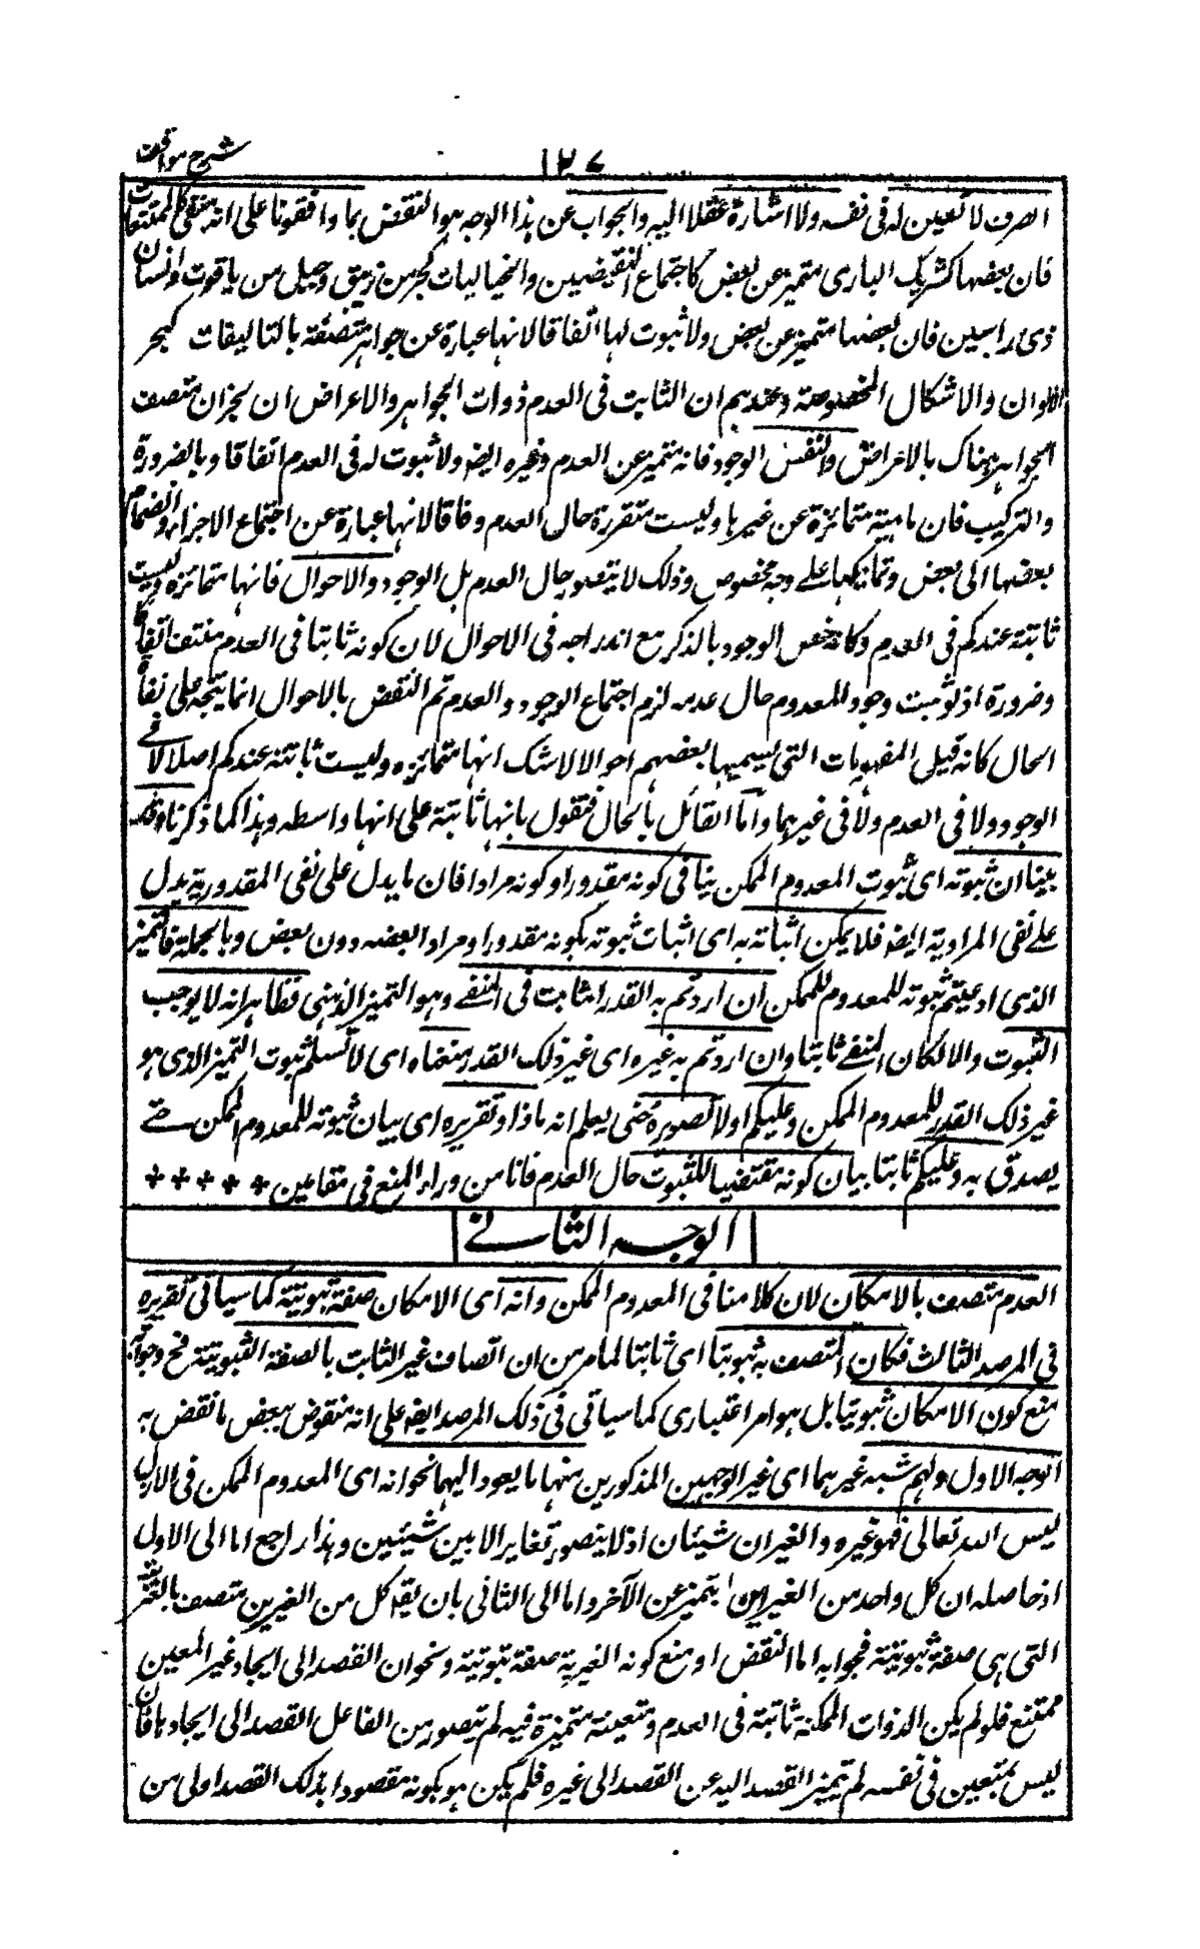 شرح مواقف
١٢٧
الصرف لا تعين له فى نفسه ولا اشارة عقلا اليه والجواب عن هذا الوجه هو النقض بما وافقونا على انه منتفى كالممتنعات
فان بعضها كشريك البارى متميز عن بعض كاجتماع النقيضين والخياليات كبحر من زيبق وجبل من ياقوت وانسان
ذى راسين فان بعضها متميز عن بعض ولا ثبوت لها اتفاقا لانها عبارة عن جواهر متصفة بالتاليفات كبحر
الالوان والاشكال المخصوصة وعندهم ان الثابت فى العدم ذوات الجواهر والاعراض ان يجزان تتصف
الجواهر هناك بالاعراض والنفس الوجود فانه متميز عن العدم وغيره ايضا ولا ثبوت له فى العدم اتفاقا وبالضرورة
والتركيب فان ماهيته متمايزة عن غيرها وليست متقررة حال العدم وفاقا لانها عبارة عن اجتماع الاجزاء وانضمام
بعضها الى بعض وتماسكها على وجه مخصوص وذلك لا يتصور حال العدم بل الوجود والاحوال فانها متمايزة وليست
ثابتة عندكم فى العدم وكانه خص الوجود بالذكر مع اندراجه فى الاحوال لان كونه ثابتا فى العدم منتف اتفاقا
وضرورة اذ لو ثبت وجود المعدوم حال عدمه لزم اجتماع الوجود والعدم ثم النقض بالاحوال انما يتجه على نفاة
الحال كانه قيل المفهومات التى يسميها بعضهم احوالا لا شك انها متمايزه وليست ثابتة عندكم اصلا لا فى
الوجود ولا فى العدم ولا فى غيرهما واما القائل بالحال فنقول بانها ثابتة على انها واسطه وهذا كما ذكرنا وقد
بينا ان ثبوته اى ثبوت المعدوم الممكن ينافى كونه مقدورا وكونه مرادا فان ما يدل على نفى المقدورية يدل
على نفى المرادية ايضا فلا يمكن اثباته به اى اثبات ثبوته بكونه مقدورا ومرادا لبعضه دون بعض وبالجملة فالتميز
الذى ادعيتم ثبوته للمعدوم للممكن ان اردتم به القدر الثابت فى المنفى وهو التميز الذهنى فظاهر انه لا يوجب
الثبوت والا لكان المنفى ثابتا وان اردتم به غيره اى غير ذلك القدر منعناه اى لا نسلم ثبوت التميز الذى هو
غير ذلك القدر للمعدوم الممكن وعليكم اولا تصويره حتى يعلم انه ماذا وتقريره اى بيان ثبوته للمعدوم الممكن حتى
يصدق به وعليكم ثانيا بيان كونه مقتضيا للثبوت حال العدم فانا من وراء المنع فى مقامين
الوجه الثانى
العدم متصف بالامكان لان كلامنا فى المعدوم الممكن وانه اى الامكان صفة ثبوتية كما سياتى تقريره
فى المرصد الثالث فكان المتصف به ثبوتيا اى ثابتا لما مر من ان اتصاف غير الثابت بالصفة الثبوتية مح وجوابه
منع كون الامكان ثبوتيا بل هو امر اعتبارى كما سياتى فى ذلك المرصد ايضا على انه منقوض ببعض ما نقض به
الوجه الاول ولهم شبه غيرهما اى غير الوجهين المذكورين منها ما يعود اليهما نحو انه اى المعدوم الممكن فى الازل
ليس الله تعالى فهو غيره والغيران شيئان اذ لا يتصور تغاير الا بين شيئين وهذا راجع اما الى الاول
اذ حاصله ان كل واحد من الغيرين يتميز عن الآخر واما الى الثانى بان يقال كل من الغيرين متصف بالغيرية
التى هى صفة ثبوتية فجوابه اما النقض او منع كونه الغيرية صفة ثبوتية ونحو ان القصد الى ايجاد غير المعين
ممتنع فلو لم يكن الذوات الممكنة ثابتة فى العدم ومتعينة متميزة فيه لم يتصور من الفاعل القصد الى ايجادها فان
ليس بمتعين فى نفسه لم يتميز القصد اليه عن القصد الى غيره فلم يكن هو بكونه مقصودا بذلك القصد اولى من